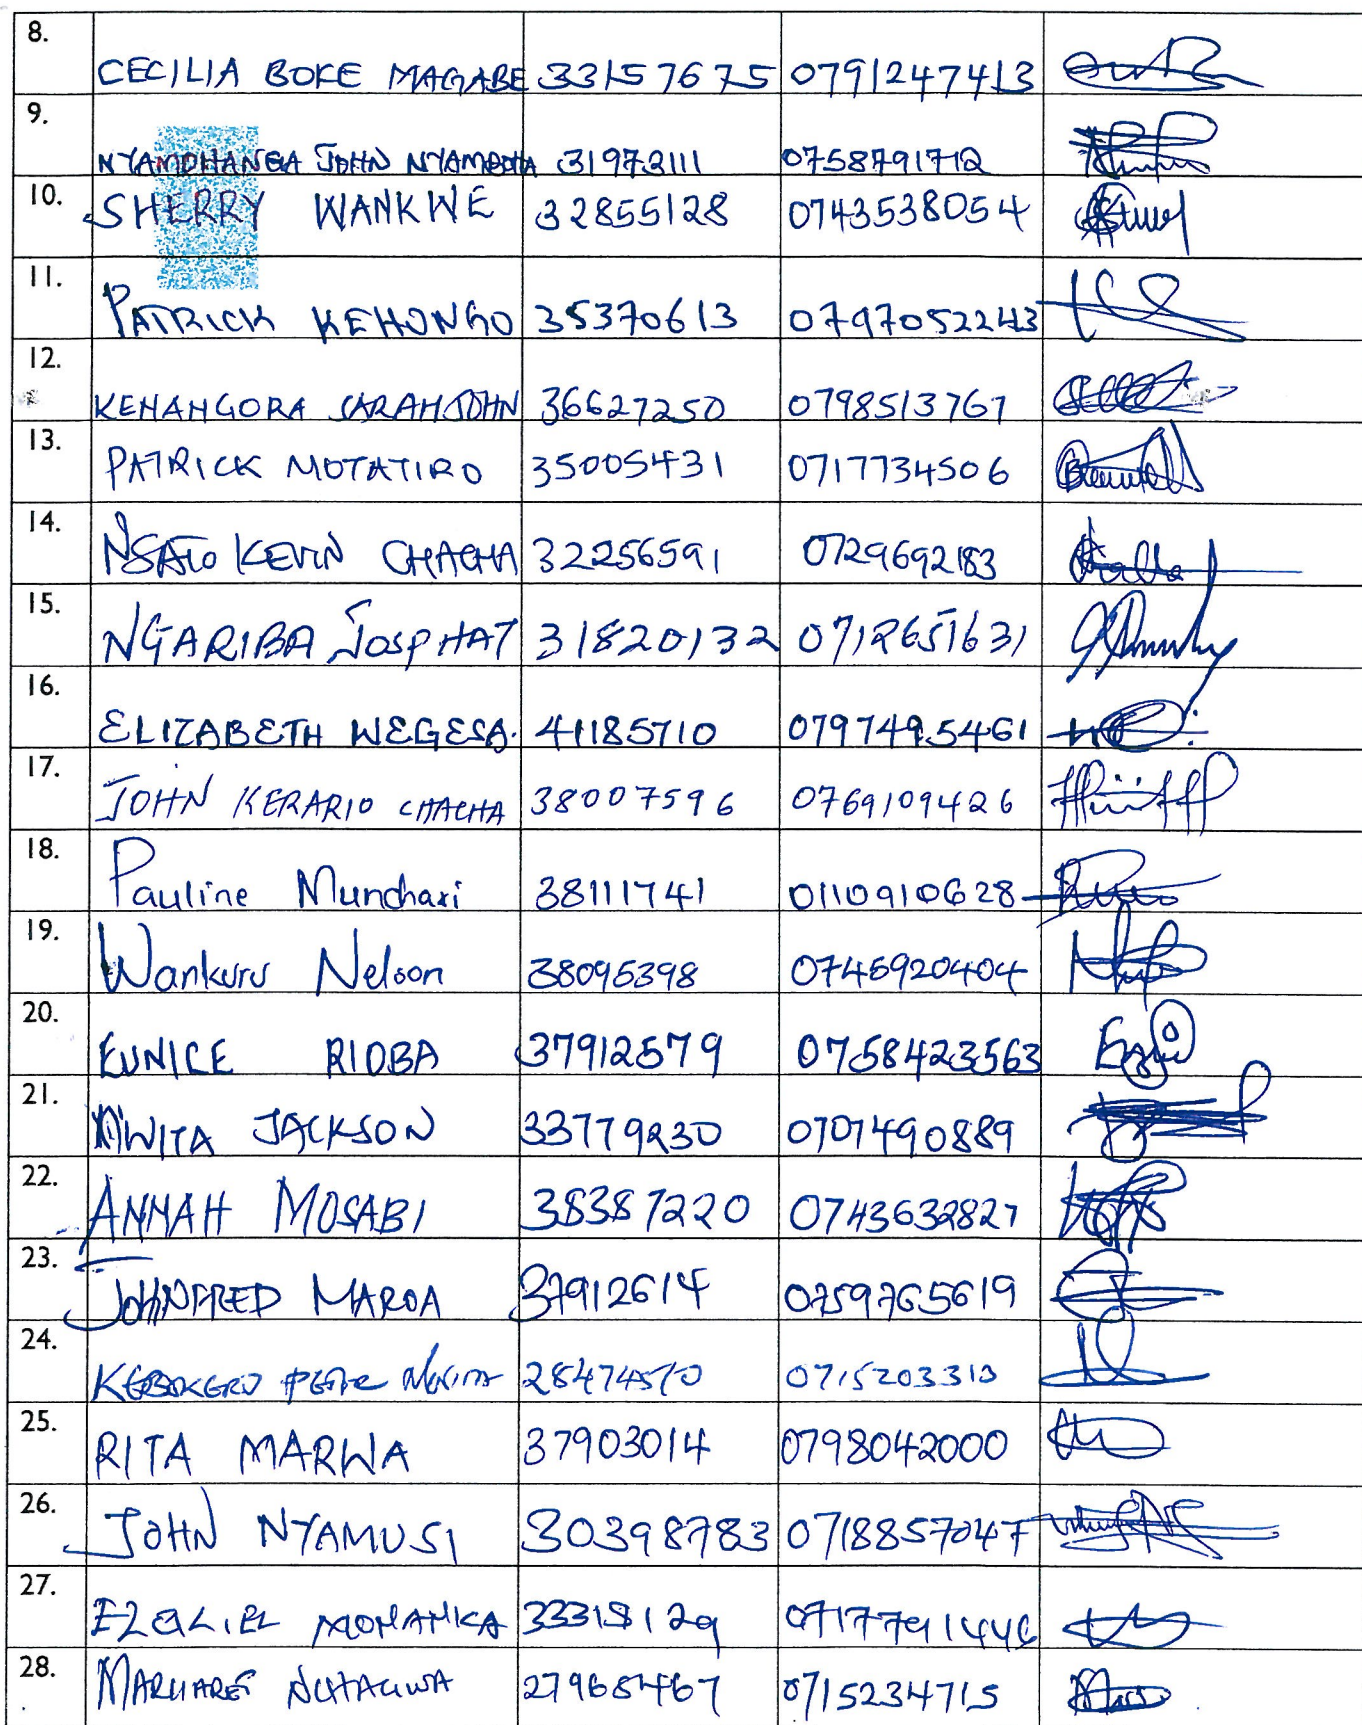 8. CECILIA BOKE MAGABE 33157675 0791247413
9. NYAMOHANGA JOHN NYAMOHA 31973111 0758791712
10. SHERRY WANKWE 32855128 0743538054
11. PATRICK KEHONGO 35370613 0797052243
12. KENANGORA SARAH JOHN 36627250 0798513767
13. PATRICK MOTATIRO 35005431 0717734506
14. NSATO KEVIN CHACHA 32256591 0729692183
15. NGARIBA JOSPHAT 31820132 0712651631
16. ELIZABETH WEGESA. 41185710 0797495461
17. JOHN KERARIO CHACHA 38007596 0769109426
18. Pauline Munchari 38111741 0110910628
19. Wankuru Nelson 38095398 0745920404
20. EUNICE RIOBA 37912579 0758423563
21. MWITA JACKSON 33779230 0707490889
22. ANNAH MOSABI 38387220 0743632827
23. JOHNFRED MAROA 37912614 0759765619
24. 28474570 0715203313
25. RITA MARWA 37903014 0798042000
26. JOHN NYAMUSI 30398783 0718857047
27. 33318129 0717791446
28. MARGARET 27965467 0715234715